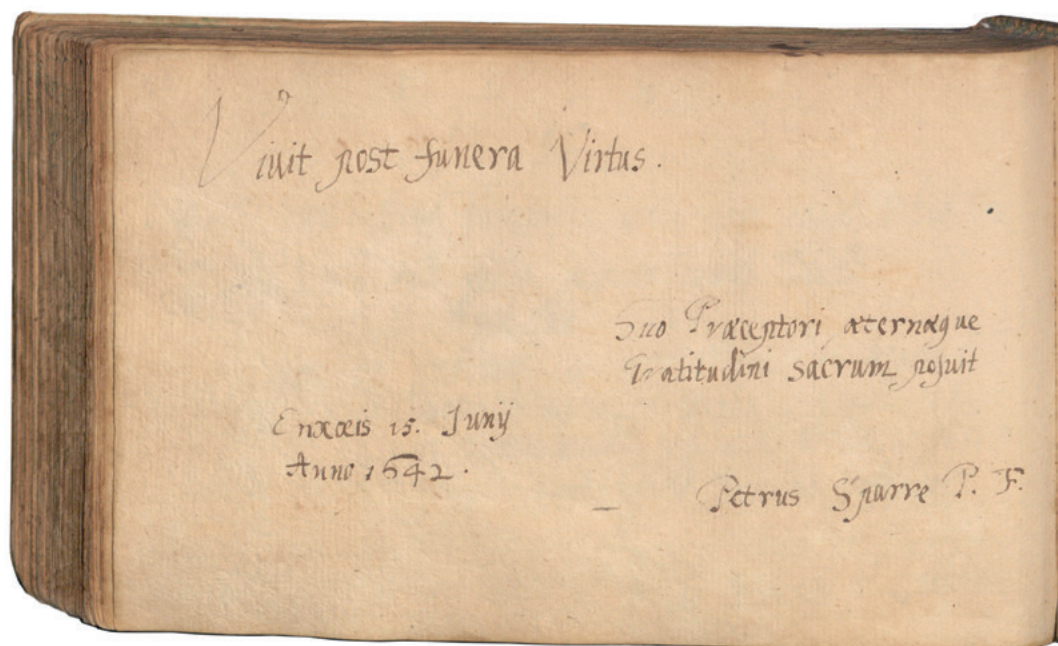 Viuit post funera Virtus.
Suo Præceptori æternæque
Gratitudini sacrum posuit
15. Junij
Anno 1642.
Petrus Sparre P. F.